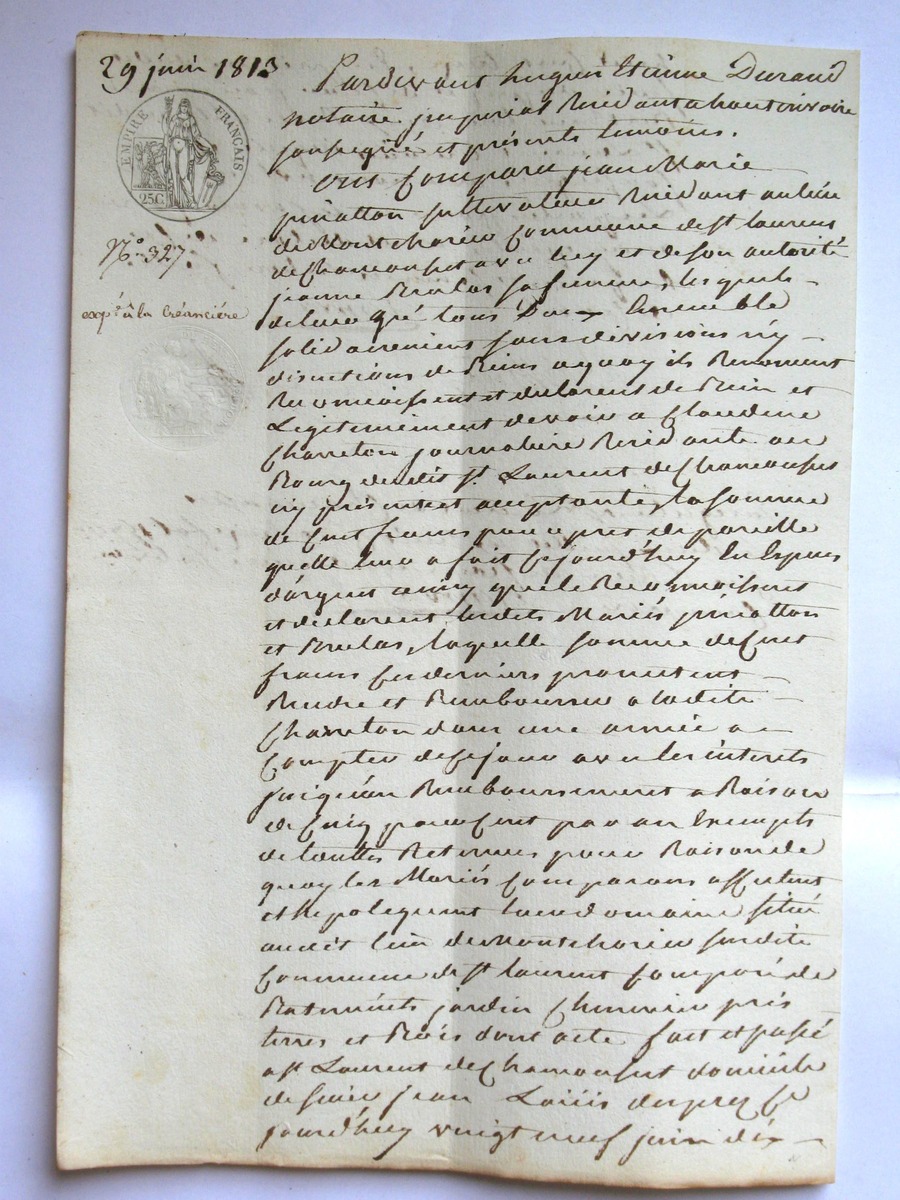 29 juin 1813
EMPIRE FRANÇAIS
25C
N.º 327
exp.e à la Créancière
Pardevant hugue Etienne Durand
notaire imperial Residant a haut rivoire
soussigné et présents temoins.
Ont Comparu jean Marie
pinatton cultivateur Residant au lieu
de Commune de st laurent
de Chamousset avec luy et de son autorité
jeanne sa femme, lesquels
de leur gré tous Deux Ensemble
solidairement sans divisions ny
discutions de Biens a quoy ils Renoncent
Reconnoissent et declarent de Bien et
Legitimement devoir a Claudine
Charreton journaliere Residante au
Bourg dudit st. Laurent de Chamousset
icy présente et acceptante, la somme
de Cent francs pour a pret de pareille
quelle leur a fait Cejourd'huy En Especes
d'argent ainsy que le Reconnoissent
et declarent lesdits Mariés pinatton
et laquelle somme de Cent
francs Ces derniers promettent
Rendre et Rembourser a ladite
Charreton dans une année a
Compter de Ce jour avec les interets
jusqu'au Remboursement a Raison
de Cinq pour Cent par an Exempts
de touttes Retenues pour Raison de
quoy les Mariés Comparans affectent
et hipotequent leur domaine situé
audit lieu de susdite
Commune de st laurent Composé de
Batiments jardin Cheneviere prés
terres et Bois dont acte fait et passé
a st Laurent de Chamousset domicile
de sieur jean Louis Ce
jourd'huy vingt neuf juin dix